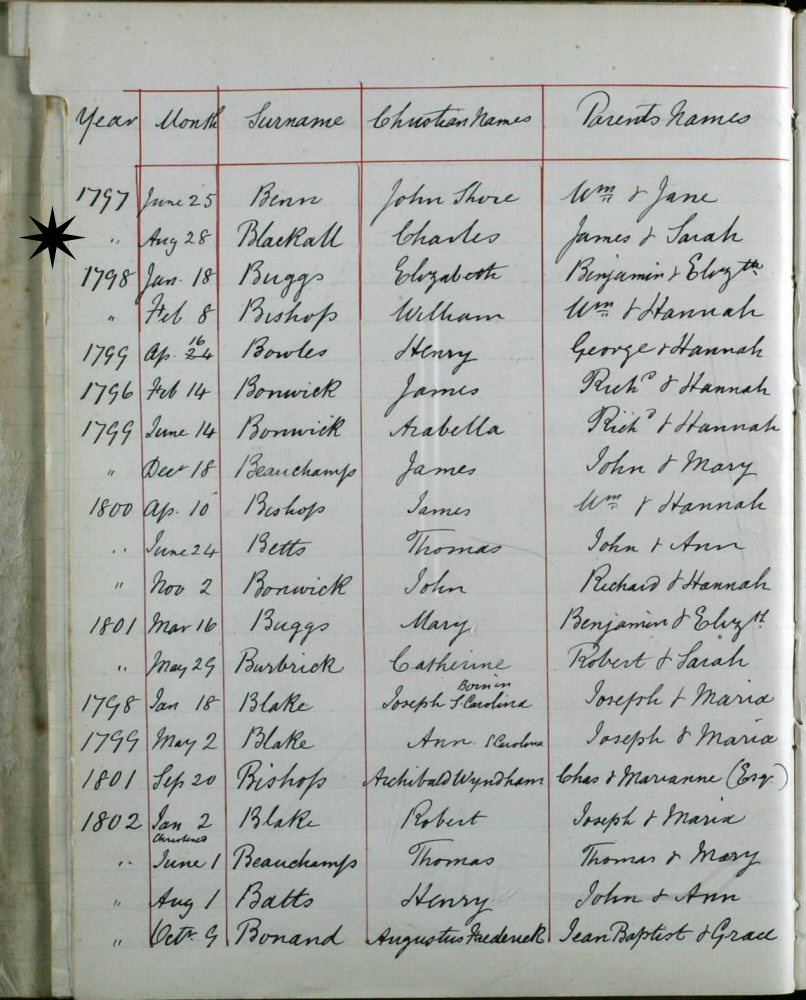 Year Month Surname Christian Names Parents Names
1797 June 25 Benn John Shore Wm & Jane
" Aug 28 Blackall Charles James & Sarah
1798 Jan. 18 Buggs Elizabeth Benjamin & Elizth
" Feb 8 Bishop William Wm & Hannah
1799 Ap. 16 24 Bowles Henry George & Hannah
1796 Feb 14 Bonwick James Richd & Hannah
1799 June 14 Bonwick Arabella Richd & Hannah
" Decr 18 Beauchamps James John & Mary
1800 Ap. 10 Bishop James Wm & Hannah
" June 24 Betts Thomas John & Ann
" Nov 2 Bonwick John Richard & Hannah
1801 Mar 16 Buggs Mary Benjamin & Elizth
" May 29 Burbrick Catherine Robert & Sarah
1798 Jan 18 Blake Joseph Born in S Carolina Joseph & Maria
1799 May 2 Blake Ann. S Carolina Joseph & Maria
1801 Sep 20 Bishop Archibald Wyndham Chas & Marianne (Esq.)
1802 Jan 2 Blake Robert Joseph & Maria
Christened
" June 1 Beauchamps Thomas Thomas & Mary
" Aug 1 Batts Henry John & Ann
" Octr 9 Bonand Augustus Frederick Jean Baptist & Grace